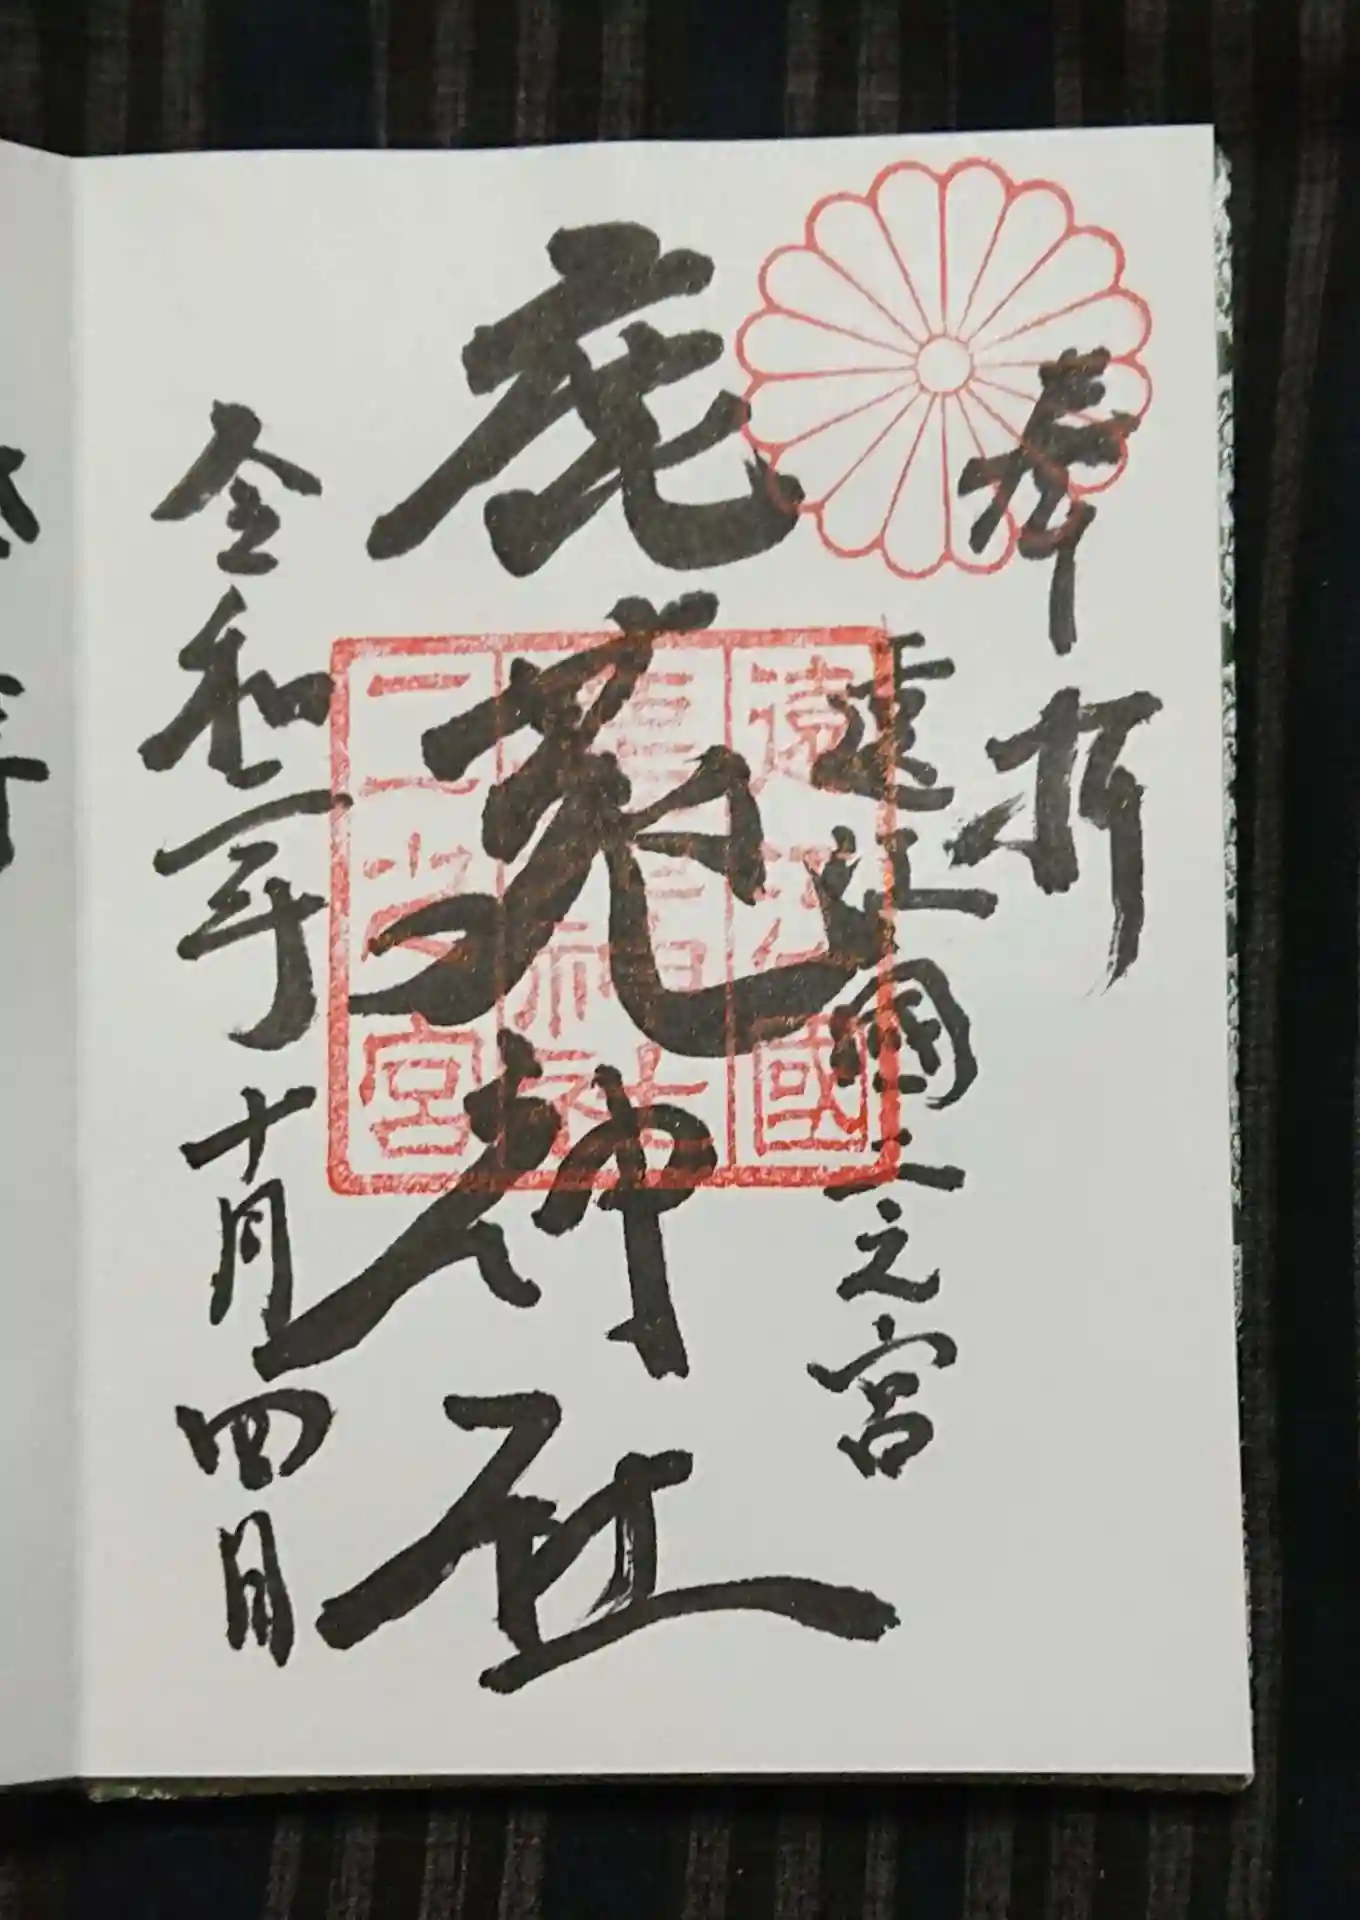 奉拝
遠江國二之宮
鹿苑神社
令和二年十月四日
遠江國
鹿苑神社
二之宮